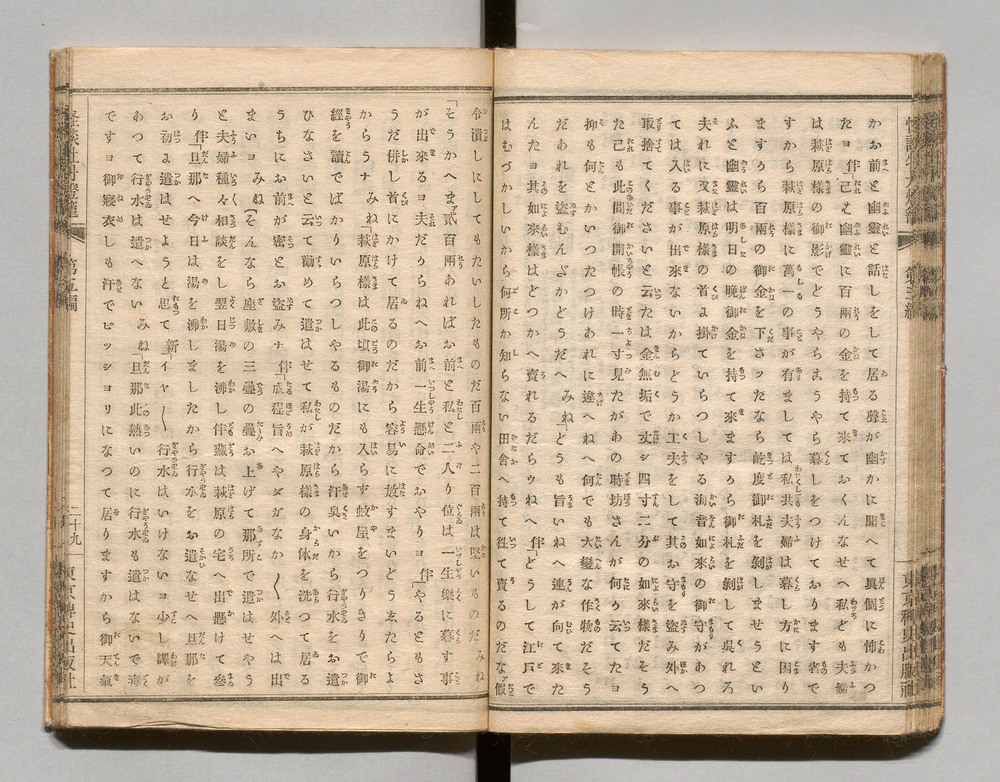 かお前と幽霊と話しをして居る聲が幽かに聞へて眞個に怖かつ
たヨ 伴「己ℯ幽霊に百兩の金を持て來ておくんなせへ私ども夫婦
は萩原様の御影でどうやらまうやら暮しをつけております者で
すから萩原様に萬一の事が有ましては私共夫婦は暮し方に困り
ますから百兩の御金を下さツたなら乾度御札を剝しませうとい
ふと幽靈は明日の晩御金を持て來ますから御札を剝して呉れろ
夫れに又萩原様の首よ掛ていらつしやる海音如來の御守があつ
ては入る事が出來ないからどうか工夫をして其お守を盗み外へ
取捨てくださいと云たは金無垢で丈ヶ四寸二分の如來様だそう
た己も此間御開帳の時一寸見たがあの時坊さんが何か云てたヨ
抑も何とかいつたつけあれに違へねへ何でも大變な作物だそう
だあれを盗むんだかどうだへ みね「どうも旨いねへ運が向て來た
んだヨ其如來様はどつかへ賣れるだらうねへ 伴「どうして江戸で
はむづかしいから何所か知らない田舎へ持て往て賣るのだなア假
令潰しにしてもたいしたものだ百兩や二百兩は堅いものだ みね
「そうかへまア貳百兩あればお前と私と二人り位は一生樂に暮す事
が出來るヨ夫だからねへお前一生懸命でおやりヨ 伴「やるともさ
うだ併し首にかけて居るのだから容易に放すまいどうゑたらよ
からうナ みね「萩原様は此頃御湯にも入らず蚊屋をつりきりで御
經を讀でばかりいらつしやるものだから汗臭いから行水をお遣
ひなさいと云て勧めて遣はせて私が萩原様の身体を洗つて居る
うちにお前が密とお盗みナ 伴「成程旨へやダがなか〳〵外へは出
まいヨ みね「そんなら座敷の三疊の疊お上げて那所で遣はせやう
と夫婦種々相談をし翌日湯を沸し伴藏は萩原の宅へ出懸けて參
り 伴「旦那へ今日は湯を沸しましたから行水をお遣なせへ旦那を
お初よ遣はせようと思て 新「イヤ〳〵行水はいけないヨ少し譯が
あつて行水は遣へない みね「旦那此熱いのに行水も遣はないで毒
ですヨ御寐衣しも汗でビツシヨリになつて居りますから御天氣
第五編
二十九
東京稗史出版社